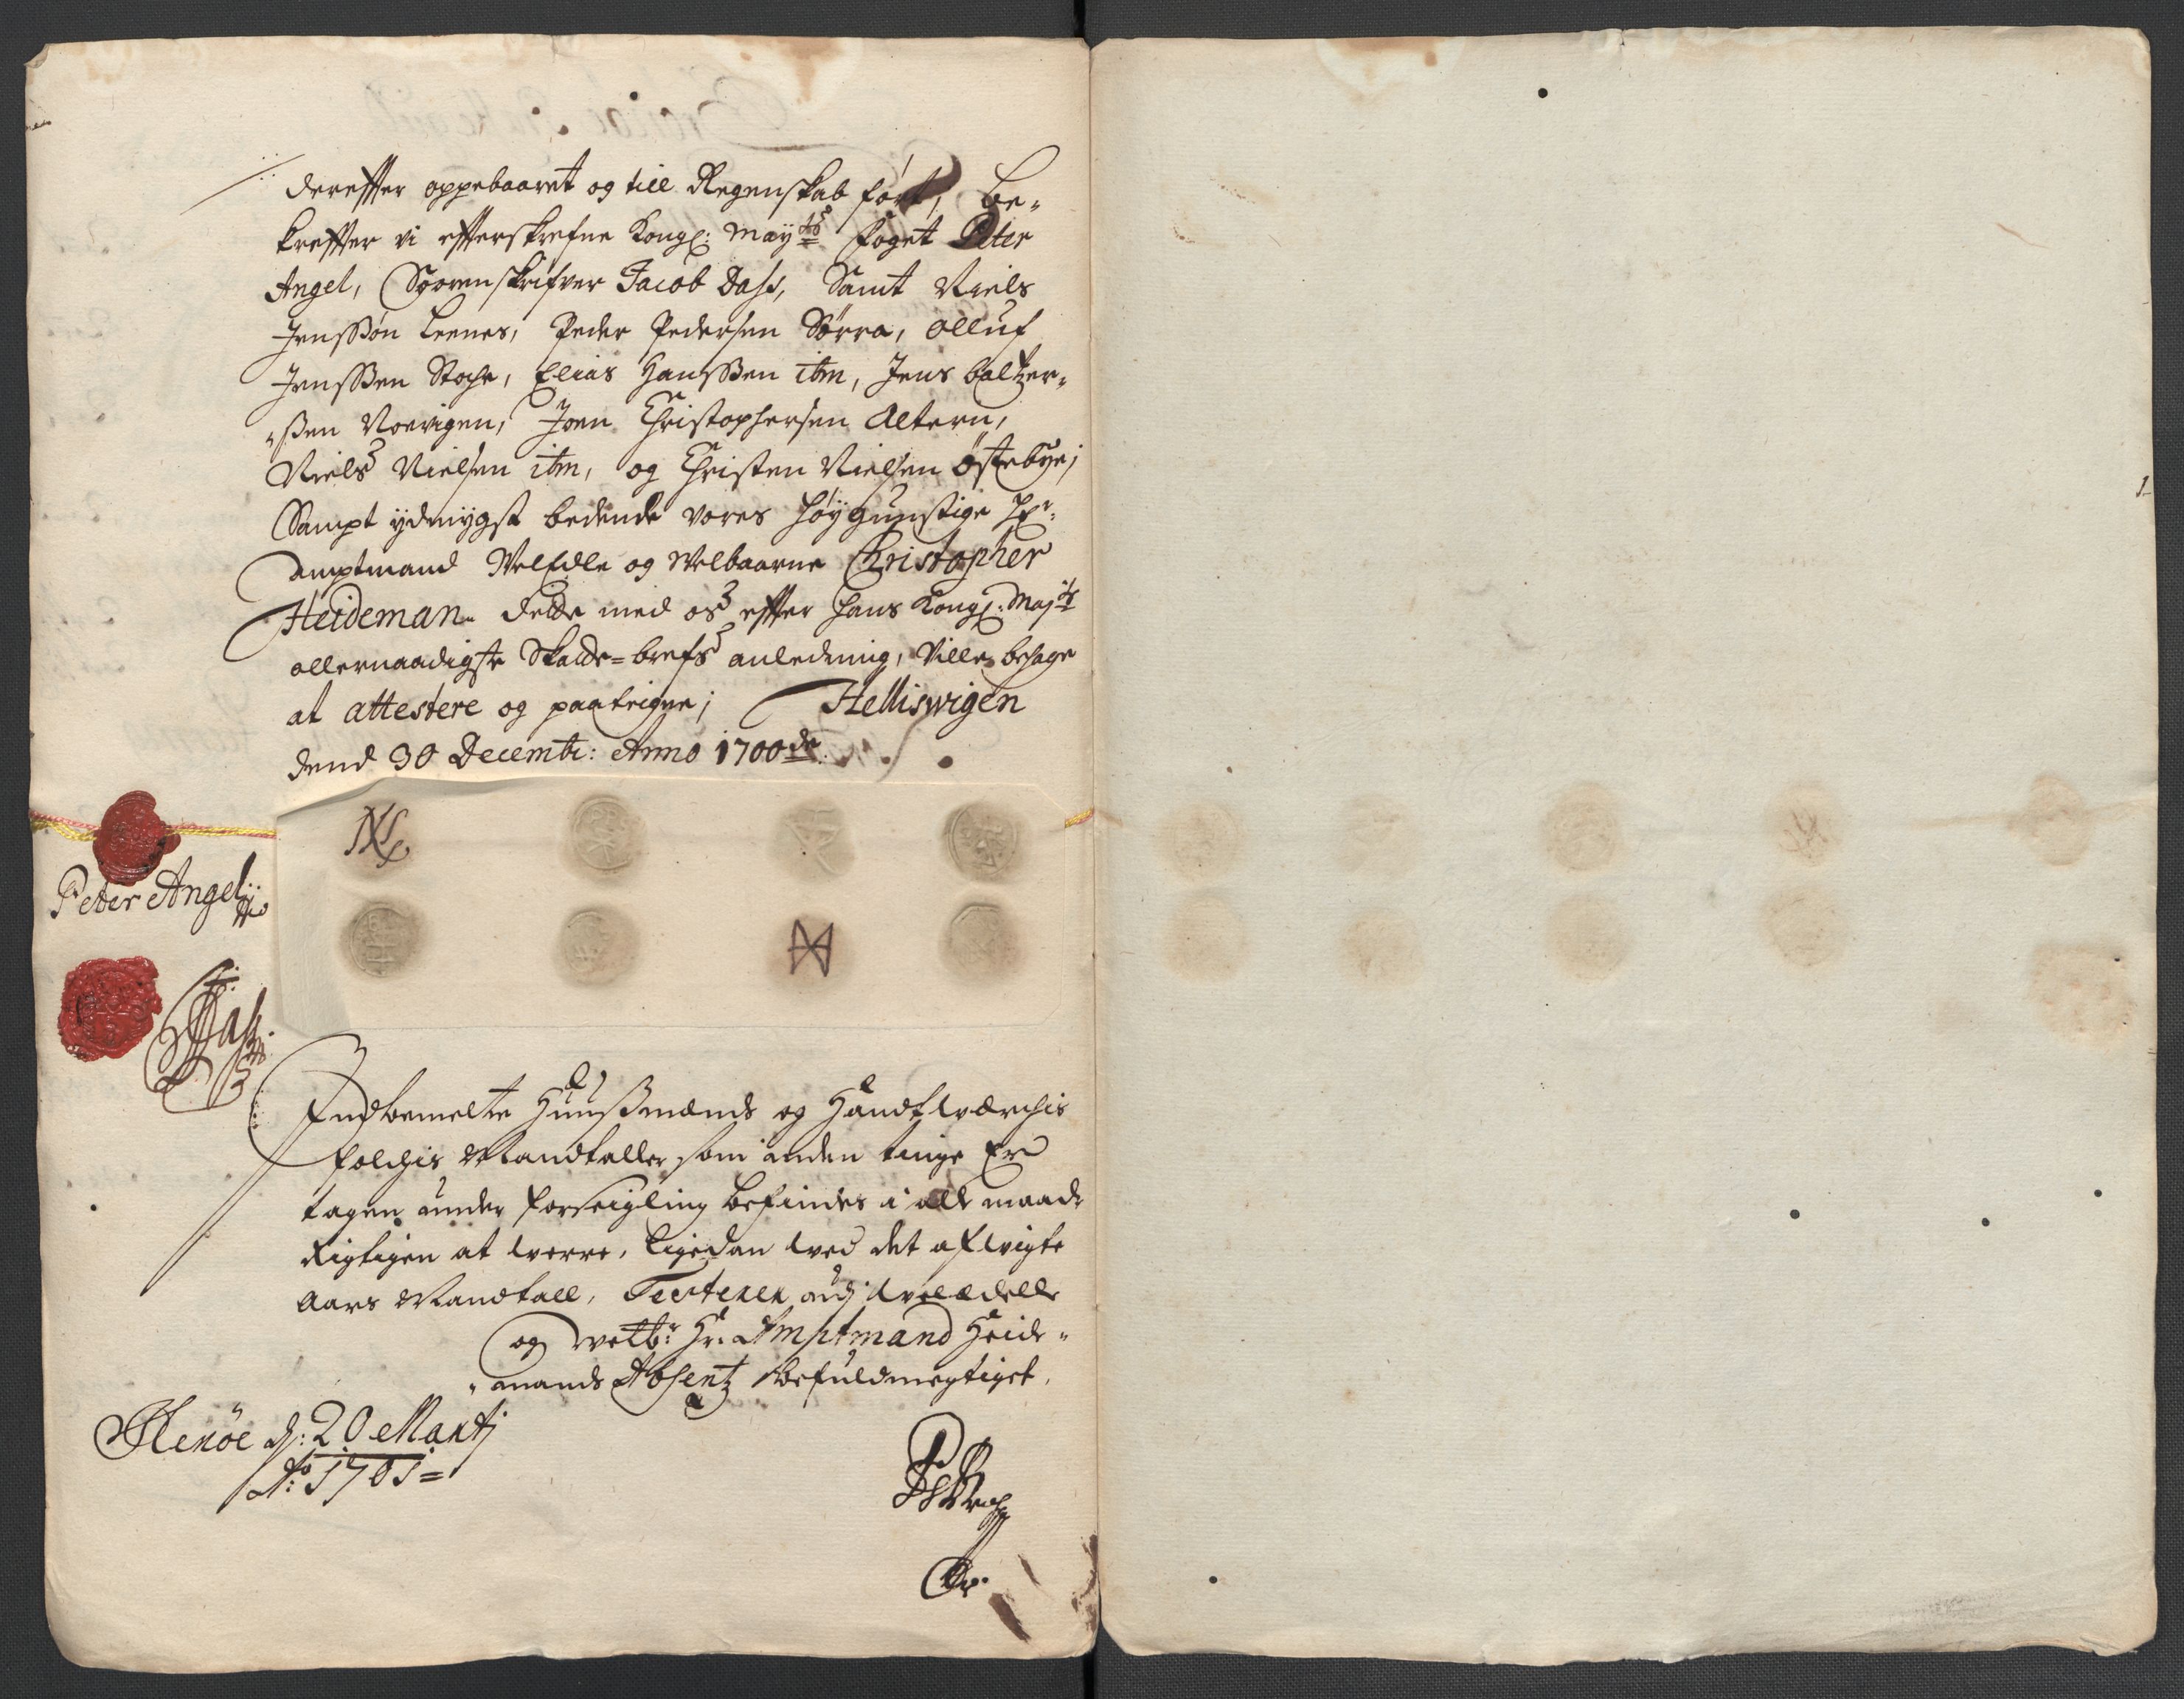 dereffter oppebaaret og till Regenskab ført, be-
kreffter vi effterskrefne Kongl: May:ts foget Peter
Angel, Soorenskrifver Jacob Dass, Samt Niels
Jenssøn Leenes, Peder Pedersen Sørra, Olluf
Jenssen Stoche, Elias Hanssen itm, Jens baltzer-
-sen Noevigen, Joen Christophersen Altern,
Niels Nielsen itm, og Christen Nielsen Østebye;
Sampt ydmygst bedende vores høygunstige Hr:
amptmand WelEdle og Welbaarne Christopher
Heideman. dette med os effter hans Kongl: Maj:ts
allernaadigste Skatte=brefs anledning, Ville behage
at attestere og paateigne; Helliswigen
dend 30 Decembr: Anno 1700de.
Peter Angel
JDass
Indbemelte Huusmænds og Handtwærchis
folchis Mandtaller som inden tinge Er
tagen under forseigling befindes i alle maade
Rigtigen at werre, ligedan wed det afwigte
Aars Mandtall, Testerer udj Welædelle
og welb:r Hr: Amptmand Heide-
-mands Absentz befuldmegtiget.
d: 20 Martj
Ao: 1701=